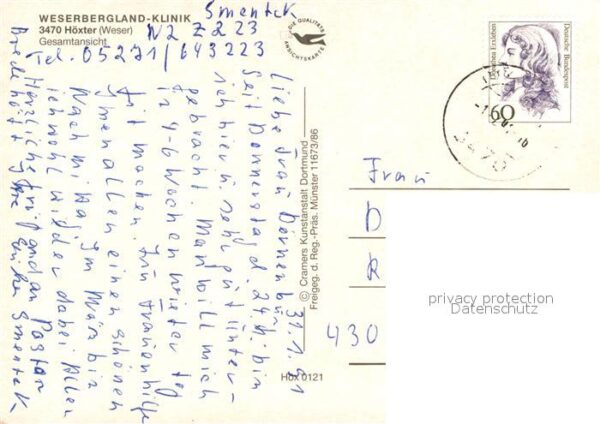 WESERBERGLAND-KLINIK
3470 Höxter (Weser)
Gesamtansicht
Smentek
N2 Z 223
Tel. 05271/643223
DIE QUALITÄTS
ANSICHTSKARTE
Deutsche Bundespost
60
3470
31.1.91
Liebe Frau
Seit Donnerstag d. 24.1. bin
ich hier u. sehr gut unter-
gebracht. Man will mich
in 4-6 Wochen wieder
fit machen. Zur Frauenhilfe
Ihnen allen einen schönen
Nachmittag. Im März bin
ich wohl wieder dabei. Allen
Herzliche Grüße an Pastor
Ihre Smentek
© Cramers Kunstanstalt Dortmund
Freigeg. d. Reg.-Präs. Münster 11673/86
Höx 0121
Frau
D
R
430
privacy protection
Datenschutz